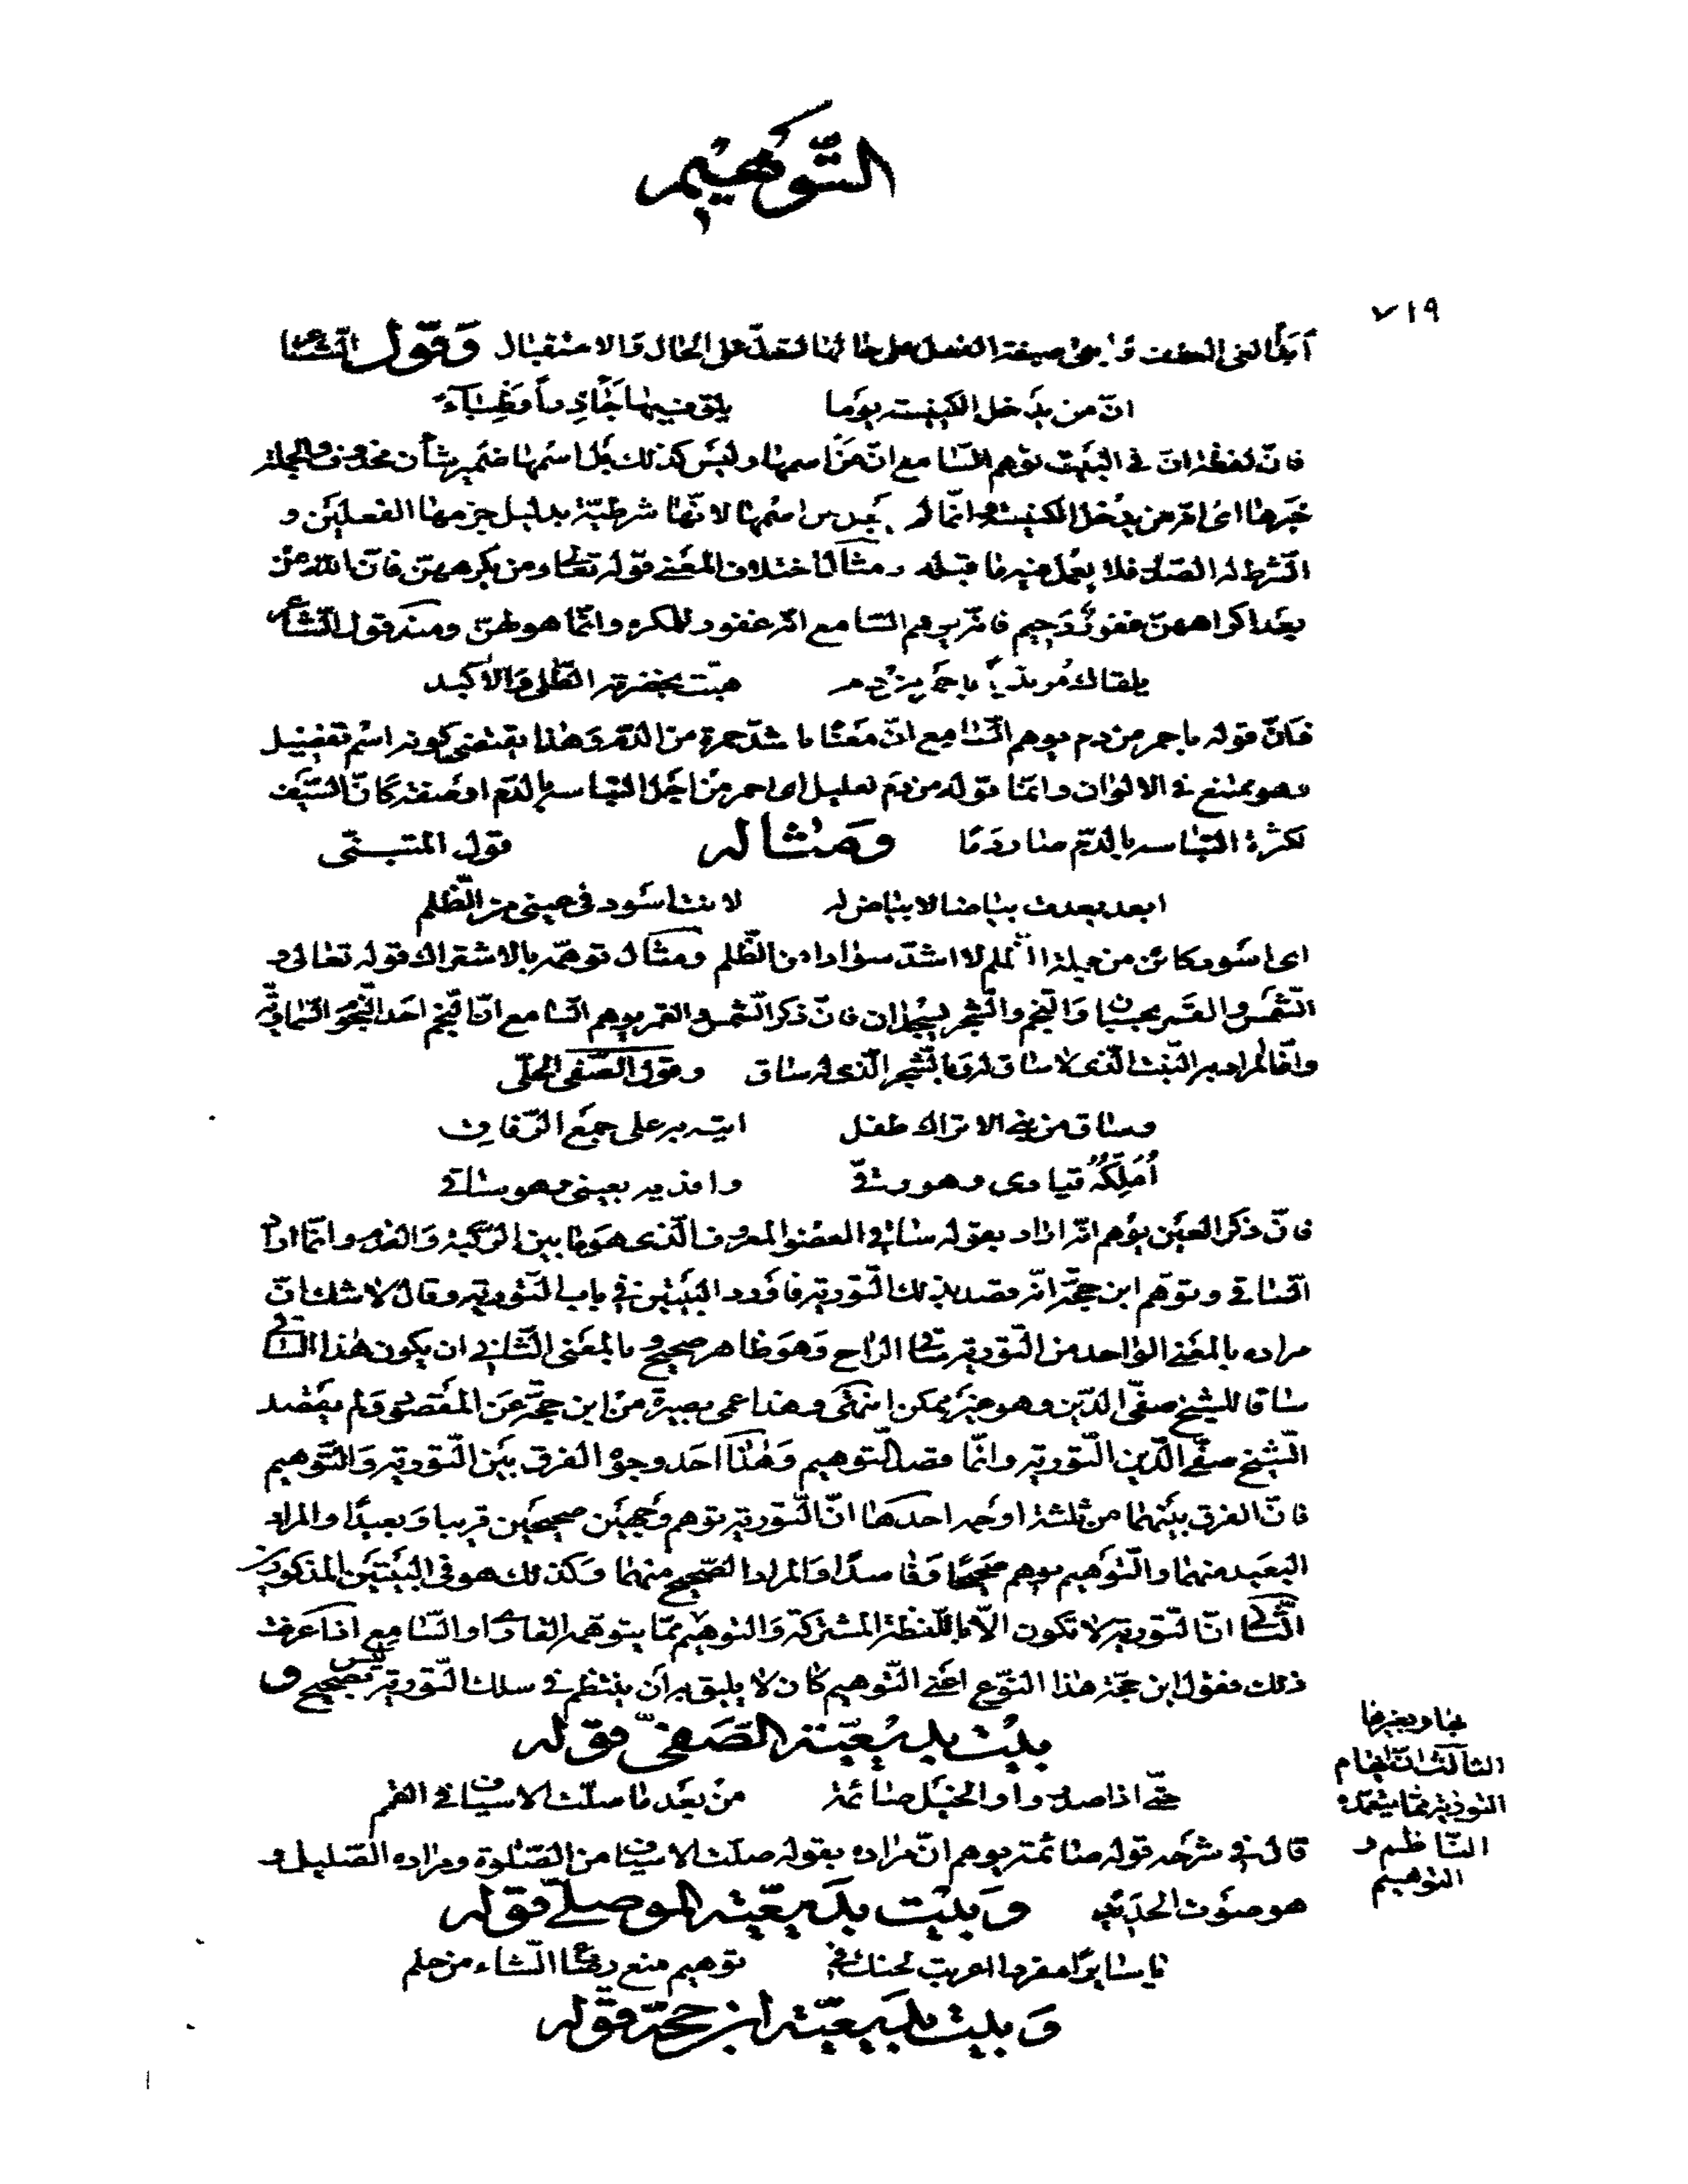 التّوهيم
٧١٩
أبدًا لغى العطف وابقى صيغة الفعل على حالها لتدلّ على الحال والاستقبال وقول الشاعر
انّ من يدخل الكنيسة يومًا يلق فيها جآذرًا وظباءَ
فانّ لفظة انّ في البيت توهم السامع انّ من اسمها وليس كذلك بل اسمها ضمير شأن محذوف والجملة
خبرها اى انه من يدخل الكنيسة وانّما لم يجعل من اسمها لانّها شرطيّة بدليل جزمها الفعلين و
الشرط له الصدر فلا يعمل فيه ما قبله ومثال اختلاف المعنى قوله تعالى ومن يكرههنّ فانّ الله من
بعد اكراههنّ غفور رحيم فانّه يوهم السامع انّه غفور للمكره وانّما هو لهنّ ومنه قول الشاعر
يلقاك مرتديًا باحمر من دم ذهبت بخضرته الطلى والأكبد
فانّ قوله باحمر من دم يوهم السامع انّ معناه باشدّ حمرة من الدم وهذا يقتضى كونه اسم تفضيل
وهو ممتنع في الالوان وانّما قوله من دم تعليل اى احمر من اجل التباسه بالدّم او صفة كانّ السّيف
لكثرة التباسه بالدّم صار دمًا ومثاله قول المتنبّى
ابعد بعدت بياضا لا بياض له لانت اسود في عينى من الظّلم
اى اسود كائن من جملة الظلم لا اشدّ سوادا من الظّلم ومثال توهّمه بالاشتراك قوله تعالى و
الشّمس والقمر بحسبان والنّجم والشّجر يسجدان فانّ ذكر الشّمس والقمر يوهم السامع انّ النّجم احد النّجوم السّماويّة
وانّما المراد به النّبت الّذى لا ساق له والشّجر الّذى له ساق وقول الصّفى الحلّى
وساق من بنى الاتراك طفل اتيه به على جمع الرّفاق
أملّكه قيادى وهو رقّى وافديه بعينى وهو ساقى
فانّ ذكر العين يوهم انّه اراد بقوله ساقى العضو المعروف الّذى هو ما بين الرّكبة والقدم وانّما اراد
السّاقى وتوهّم ابن حجّة انّه قصد بذلك التّورية فاورد البيتين في باب التّورية وقال لا شك انّ
مراده بالمعنى الواحد من التّورية ساقى الراح وهو ظاهر صحيح وبالمعنى الثّانى ان يكون هذا السّاقى
ساقا للشيخ صفىّ الدّين وهو غير ممكن انتهى وهذا عمى بصيرة من ابن حجّة عن المقصود ولم يقصد
الشّيخ صفىّ الدّين التّورية وانّما قصد التّوهيم وهذا احد وجوه الفرق بين التّورية والتّوهيم
فانّ الفرق بينهما من ثلثة اوجه احدها انّ التّورية توهم وجهين صحيحين قريبا وبعيدًا والمراد
البعيد منهما والتّوهيم يوهم صحيحًا وفاسدًا والمراد الصّحيح منهما وكذلك هو في البيتين المذكورين
الثّانى انّ التّورية لا تكون الّا باللّفظة المشتركة والتوهيم بما يتوهّمه القارى او السّامع اذا عرفت
ذلك فقول ابن حجّة هذا النّوع اعنى التّوهيم كان لا يليق به أن ينتظم في سلك التّورية ليس بصحيح و
بها وبغيرها
الثالث انّ ايهام
التورية مما يتعمده
النّاظم و
التوهيم
بيت بديعيّة الصّفىّ قوله
حتّى اذا صدروا والخيل صائمة من بعد ما صلّت الاسياف في القمم
قال في شرحه قوله صائمة يوهم انّ مراده بقوله صلّت الاسياف من الصّلوة ومراده الصّليل و
هو صوت الحديد وبيت بديعيّة الموصلىّ قوله
توهيم منع من حلم
وبيت بديعيّة ابن حجّة قوله